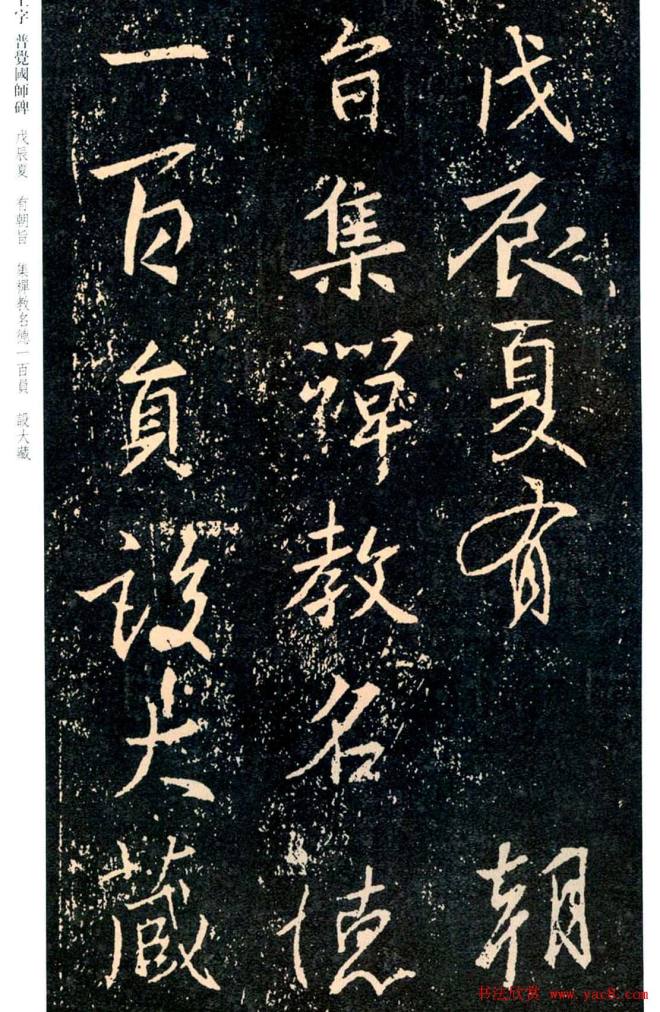 戊辰夏有 朝
旨集禪教名德
一百員設大藏
王字 普覺國師碑 戊辰夏 有朝旨 集禪教名德一百員 設大藏
书法欣赏 www.yac8.com